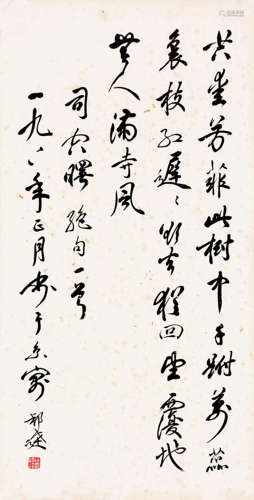 共愛芳菲此樹中千跗萬蕊
裹枝紅遲〻欲去猶回望覆地
無人滿寺風
司空曙絕句一首
一九八八年正月書于京寓